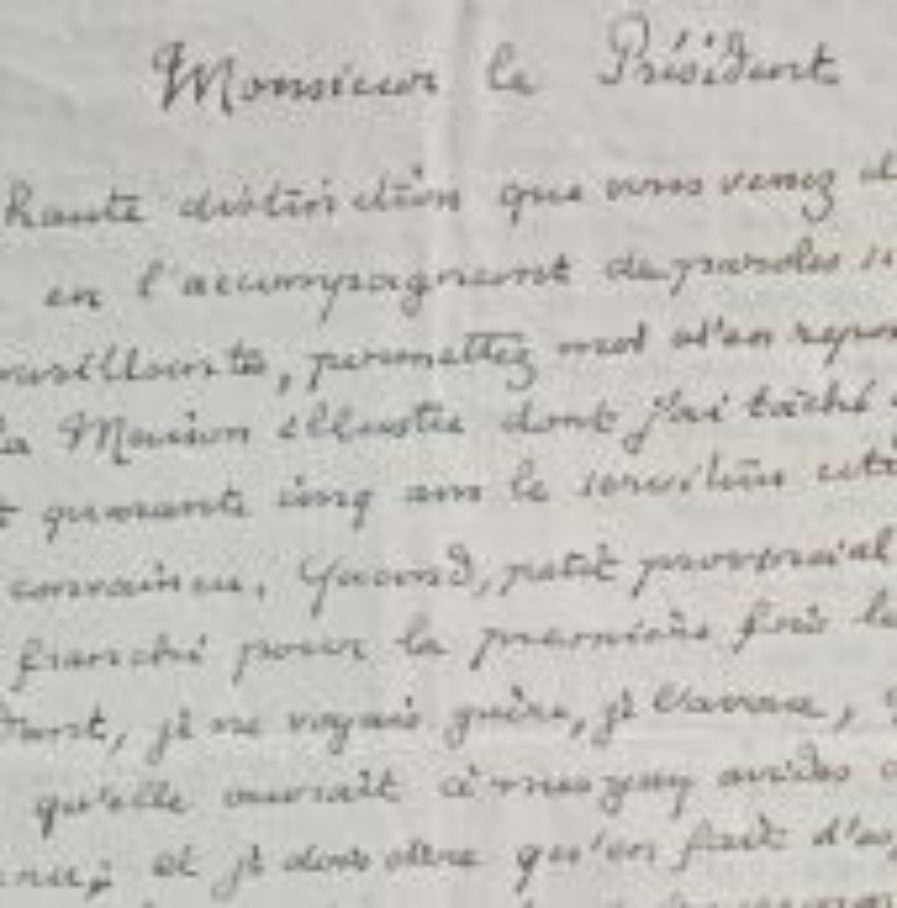 Monsieur le Président
haute distinction que vous venez d
en l'accompagnant de paroles si
veillantes, permettez moi d'en repor
la Maison illustre dont j'ai tâché
quarante cinq ans le serviteur
convaincu. Quand, petit provincial
franchi pour la première fois le
je ne voyais guère, je l'avoue,
qu'elle ouvrait à mes yeux avides
et je dois dire qu'en fait d'